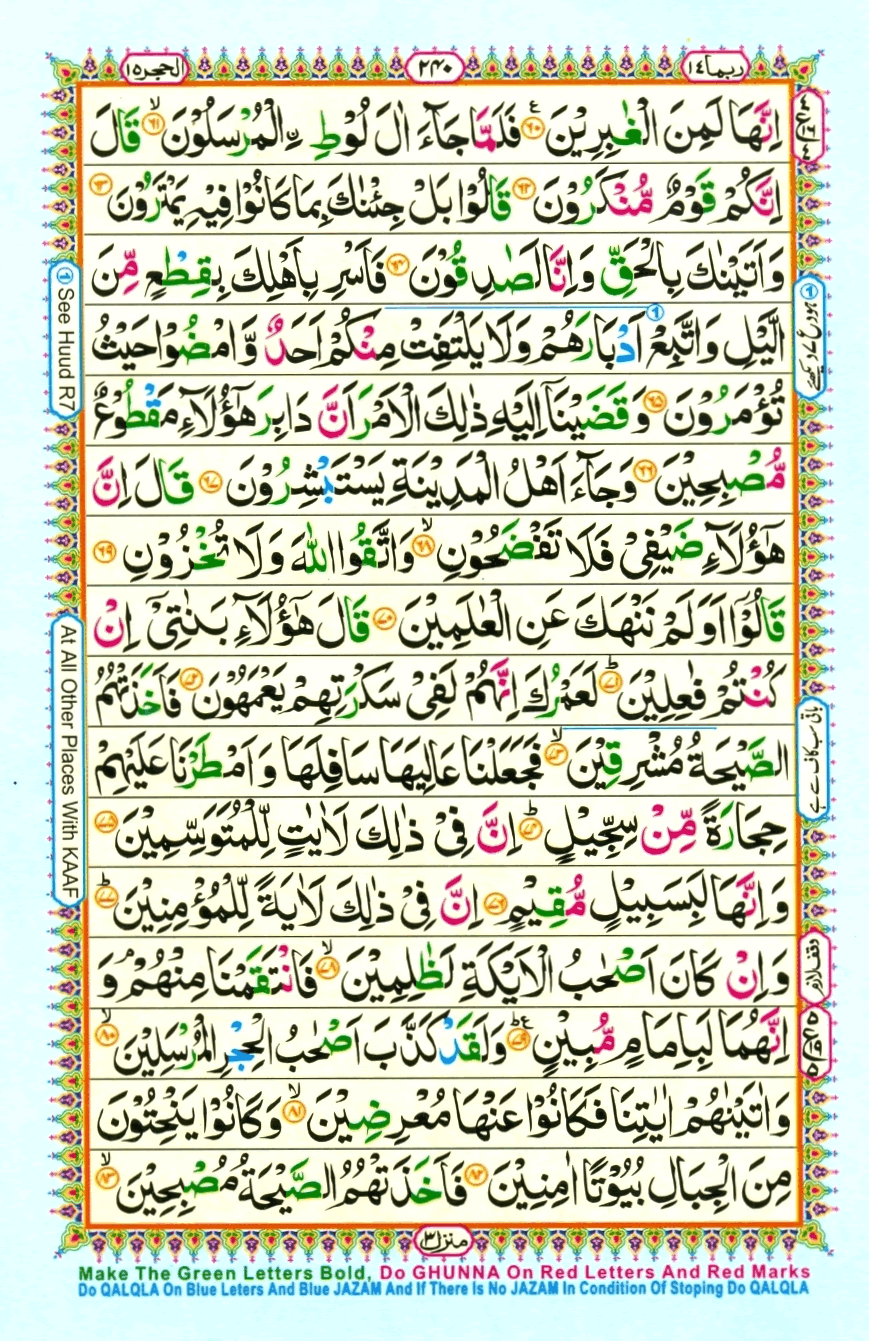 ربما ١٤
٢٤٠
الحجر ١٥
اِنَّهَا لَمِنَ الْغٰبِرِيْنَ ﴿٦٠﴾ فَلَمَّا جَآءَ اٰلَ لُوْطِ ۨالْمُرْسَلُوْنَ ﴿٦١﴾ قَالَ
اِنَّكُمْ قَوْمٌ مُّنْكَرُوْنَ ﴿٦٢﴾ قَالُوْا بَلْ جِئْنٰكَ بِمَا كَانُوْا فِيْهِ يَمْتَرُوْنَ ﴿٦٣﴾
وَاَتَيْنٰكَ بِالْحَقِّ وَاِنَّا لَصٰدِقُوْنَ ﴿٦٤﴾ فَاَسْرِ بِاَهْلِكَ بِقِطْعٍ مِّنَ
الَّيْلِ وَاتَّبِعْ اَدْبَارَهُمْ وَلَا يَلْتَفِتْ مِنْكُمْ اَحَدٌ وَّامْضُوْا حَيْثُ
تُؤْمَرُوْنَ ﴿٦٥﴾ وَقَضَيْنَاۤ اِلَيْهِ ذٰلِكَ الْاَمْرَ اَنَّ دَابِرَ هٰٓؤُلَآءِ مَقْطُوْعٌ
مُّصْبِحِيْنَ ﴿٦٦﴾ وَجَآءَ اَهْلُ الْمَدِيْنَةِ يَسْتَبْشِرُوْنَ ﴿٦٧﴾ قَالَ اِنَّ
هٰٓؤُلَآءِ ضَيْفِيْ فَلَا تَفْضَحُوْنِ ﴿٦٨﴾ وَاتَّقُوا اللّٰهَ وَلَا تُخْزُوْنِ ﴿٦٩﴾
قَالُوْۤا اَوَلَمْ نَنْهَكَ عَنِ الْعٰلَمِيْنَ ﴿٧٠﴾ قَالَ هٰٓؤُلَآءِ بَنٰتِيْۤ اِنْ
كُنْتُمْ فٰعِلِيْنَ ﴿٧١﴾ لَعَمْرُكَ اِنَّهُمْ لَفِيْ سَكْرَتِهِمْ يَعْمَهُوْنَ ﴿٧٢﴾ فَاَخَذَتْهُمُ
الصَّيْحَةُ مُشْرِقِيْنَ ﴿٧٣﴾ فَجَعَلْنَا عَالِيَهَا سَافِلَهَا وَاَمْطَرْنَا عَلَيْهِمْ
حِجَارَةً مِّنْ سِجِّيْلٍ ﴿٧٤﴾ اِنَّ فِيْ ذٰلِكَ لَاٰيٰتٍ لِّلْمُتَوَسِّمِيْنَ ﴿٧٥﴾
وَاِنَّهَا لَبِسَبِيْلٍ مُّقِيْمٍ ﴿٧٦﴾ اِنَّ فِيْ ذٰلِكَ لَاٰيَةً لِّلْمُؤْمِنِيْنَ ﴿٧٧﴾
وَاِنْ كَانَ اَصْحٰبُ الْاَيْكَةِ لَظٰلِمِيْنَ ﴿٧٨﴾ فَانْتَقَمْنَا مِنْهُمْ وَ
اِنَّهُمَا لَبِاِمَامٍ مُّبِيْنٍ ﴿٧٩﴾ وَلَقَدْ كَذَّبَ اَصْحٰبُ الْحِجْرِ الْمُرْسَلِيْنَ ﴿٨٠﴾
وَاٰتَيْنٰهُمْ اٰيٰتِنَا فَكَانُوْا عَنْهَا مُعْرِضِيْنَ ﴿٨١﴾ وَكَانُوْا يَنْحِتُوْنَ
مِنَ الْجِبَالِ بُيُوْتًا اٰمِنِيْنَ ﴿٨٢﴾ فَاَخَذَتْهُمُ الصَّيْحَةُ مُصْبِحِيْنَ ﴿٨٣﴾
منزل ٣
① See Huud R7
At All Other Places With KAAF
وقف لازم
Make The Green Letters Bold, Do GHUNNA On Red Letters And Red Marks
Do QALQLA On Blue Leters And Blue JAZAM And If There Is No JAZAM In Condition Of Stoping Do QALQLA